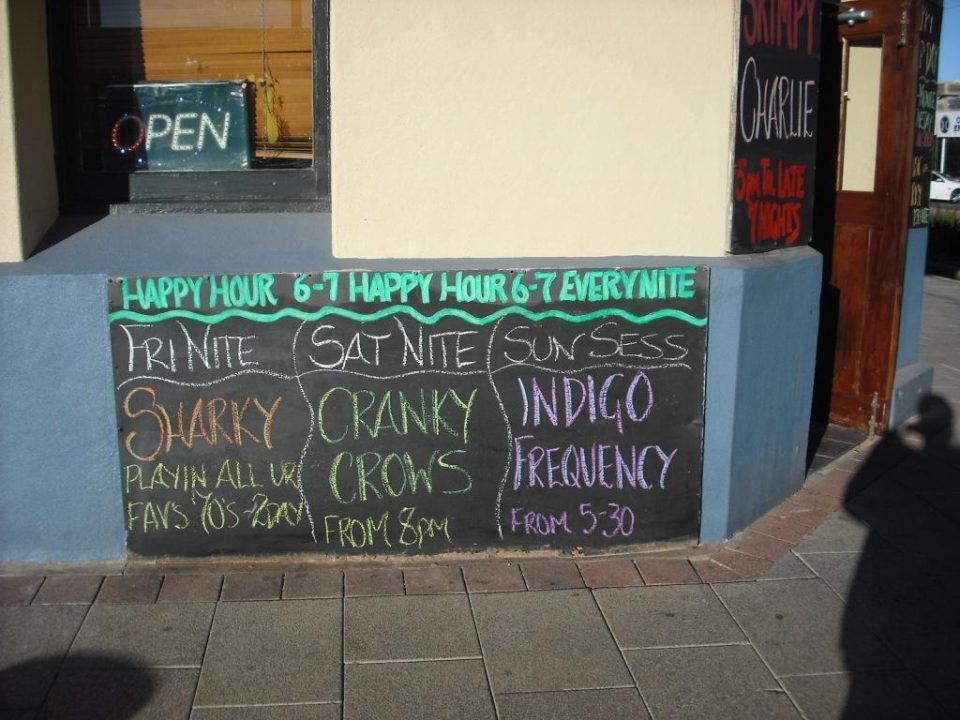 OPEN
SKIMPY
CHARLIE
5PM TIL LATE
7 NIGHTS
HAPPY HOUR 6-7 HAPPY HOUR 6-7 EVERYNITE
FRI NITE
SHARKY
PLAYIN ALL UR
FAVS 70'S-2DAY
SAT NITE
CRANKY
CROWS
FROM 8PM
SUN SESS
INDIGO
FREQUENCY
FROM 5-30